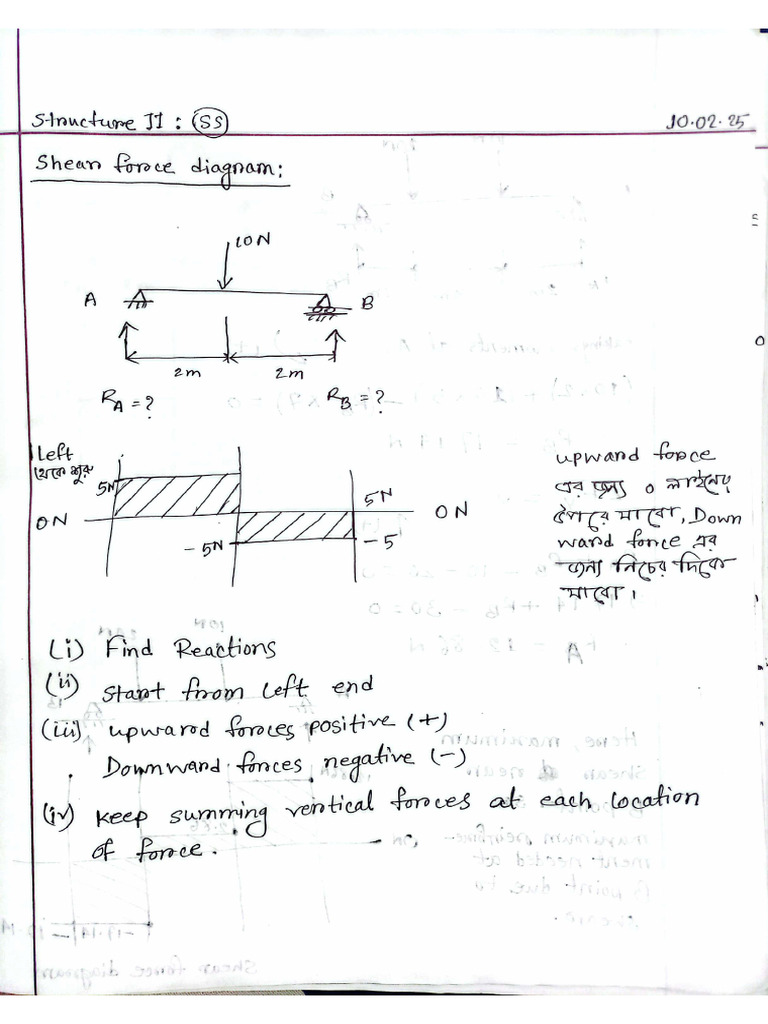 Structure II : SS
10.02.25
Shear force diagram:
10N
A
B
2m
2m
R_A = ?
R_B = ?
Left
থেকে শুরু
5N
0N
-5N
5N
-5
0N
upward force
এর জন্য 0 লাইনের
উপরে যাবো, Down
ward force এর
জন্য নিচের দিকে
যাবো।
(i) Find Reactions
(ii) Start from Left end
(iii) upward forces positive (+)
Downward forces negative (-)
(iv) Keep summing vertical forces at each location
of force.